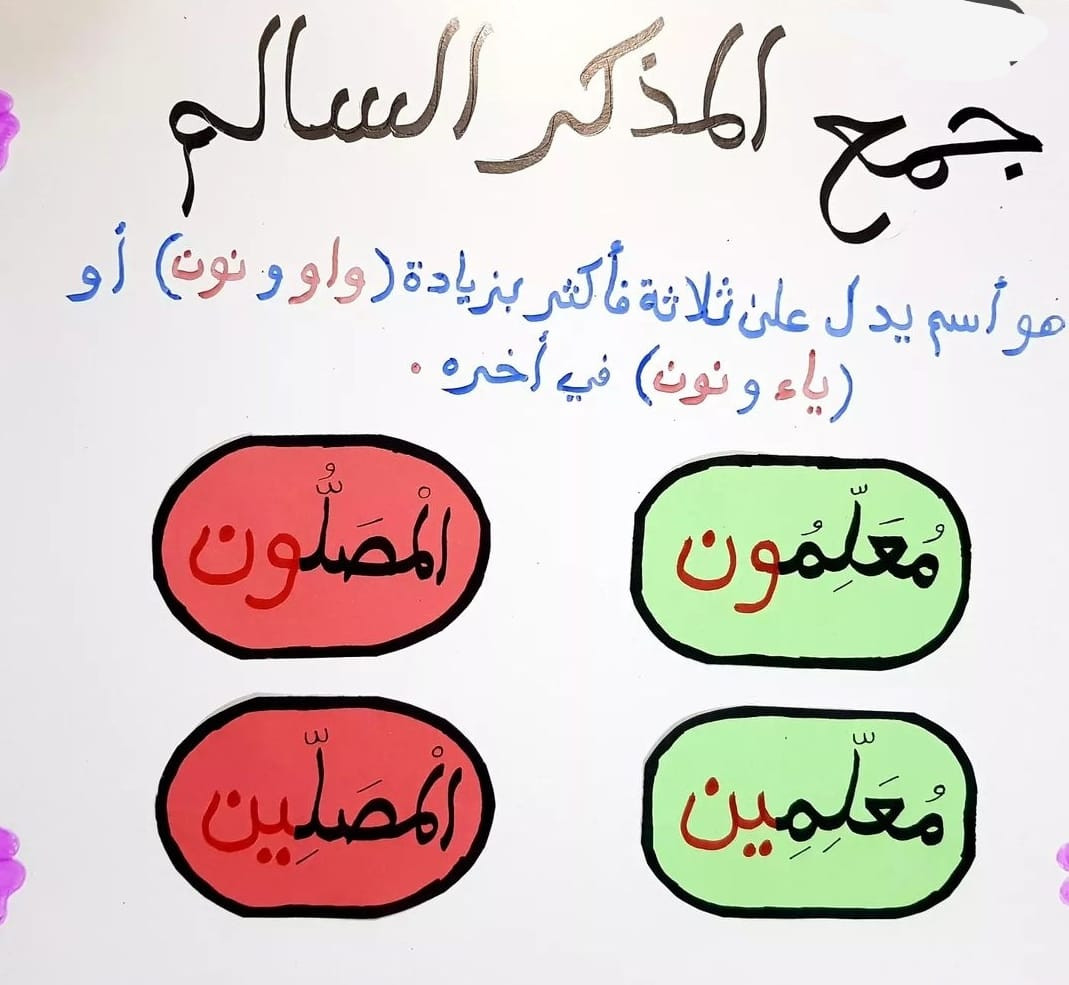 جمع المذكر السالم
هو أسم يدل على ثلاثة فأكثر بزيادة (واو و نون) أو
(ياء و نون) في أخره .
مُعَلِّمُون
الْمصَلُّون
مُعَلِّمِين
الْمصَلِّين